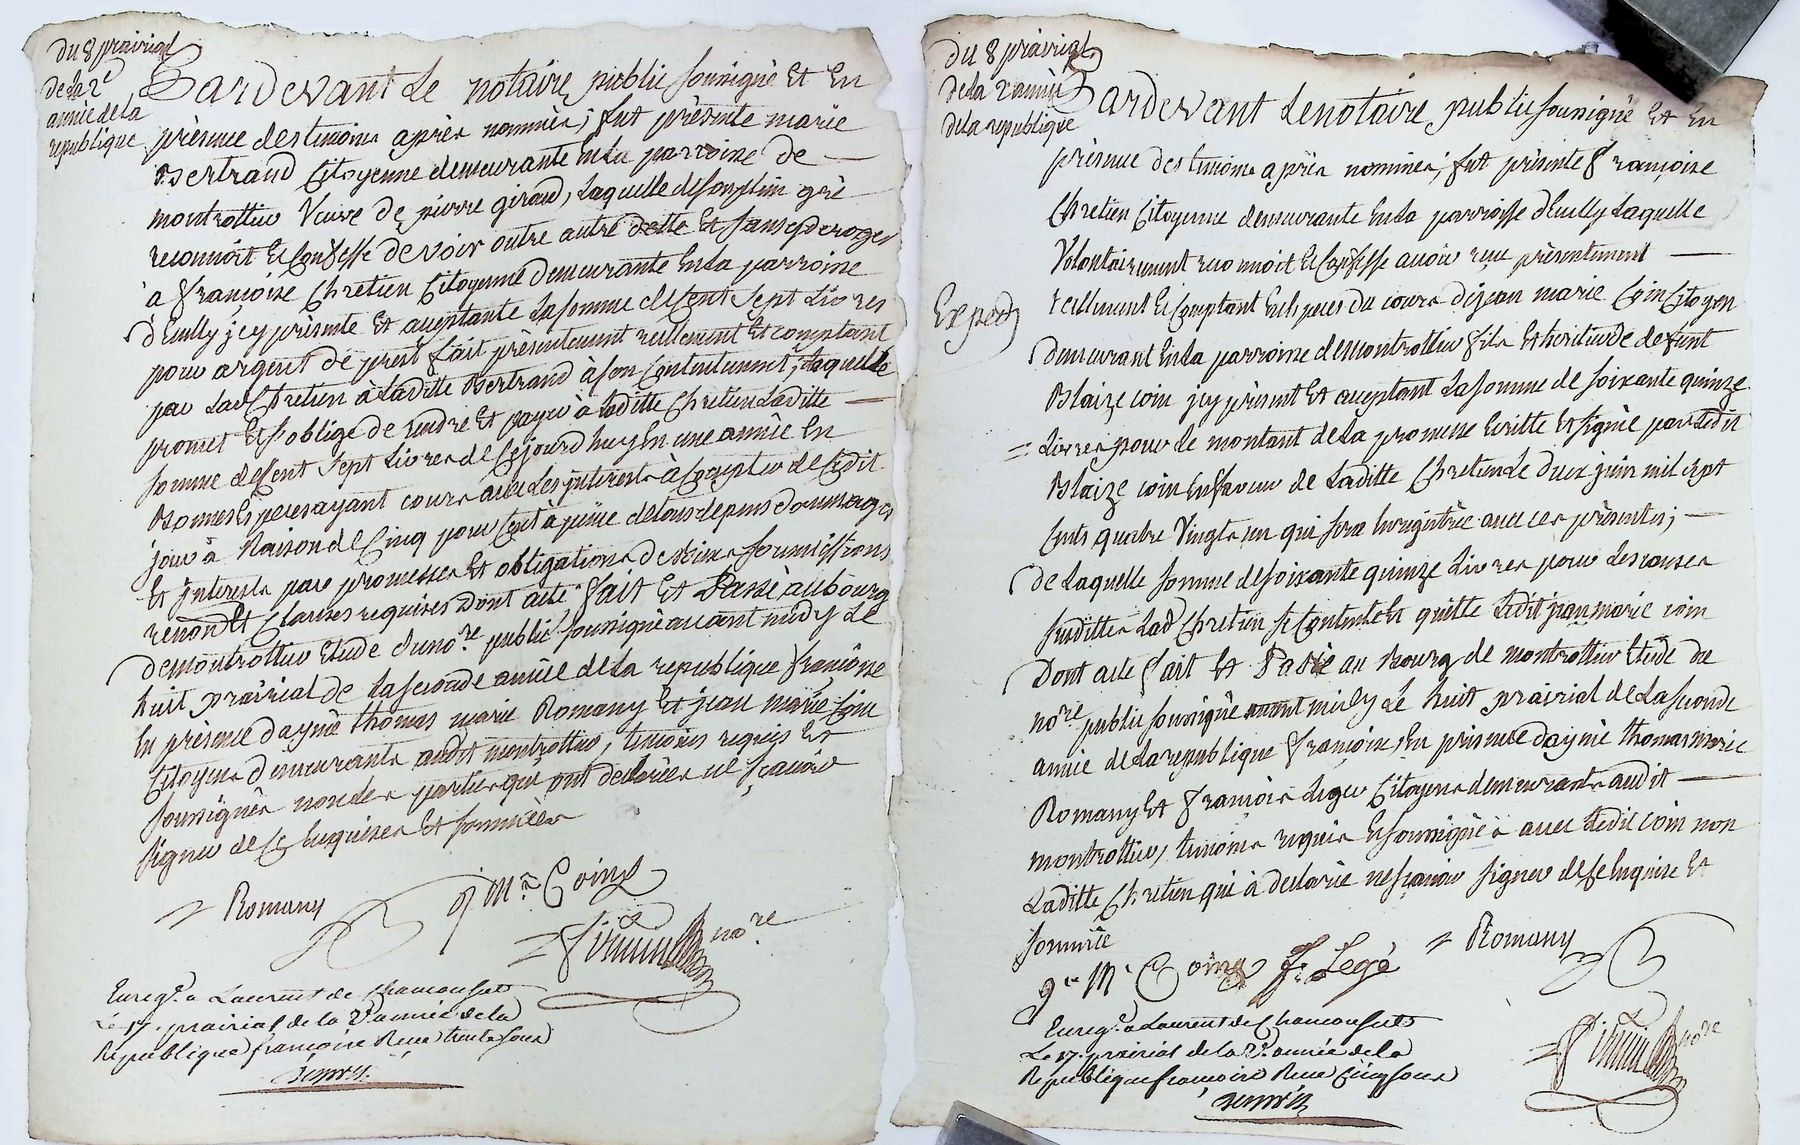 du 8 prairial
de la 2e
année de la
republique
Pardevant Le notaire public soussigné Et En
présence des temoins après nommés; fut présente marie
Bertrand Citoyenne demeurante En la parroisse de
montrottier Veuve de pierre giraud, Laquelle de son plein gré
reconnoit Et Confesse devoir outre autre dette Et sans y deroger
à françoise Chretien Citoyenne demeurante En la parroisse
d'Eully jcy présente Et aceptante La somme de Cent Sept Livres
pour argent de prest fait présentement reellement Et comptant
par Lad Chretien à Laditte Bertrand à son Contentement, Laquelle
promet Et s'oblige de rendre Et payer à Laditte Chretien Laditte
somme de Cent Sept Livres de Cejourd'huy En une année En
Bonnes Especes ayant cours avec Les jnterests à Compter de Cedit
jour à Raison de Cinq pour Cent à peine de tous depens dommages
Et jnterests par promesses Et obligations de biens soumissions
renon Et Clauses requises Dont acte, fait Et Passé au bourg
de montrottier Etude du nore public soussigné avant midy Le
huit prairial de La seconde année de La republique françoise
En présence d'aymé thomas marie Romany Et jean marie Coin
Citoyens demeurants audit montrottier, temoins requis Et
soussignés non les parties qui ont declarées ne sçavoir
signer de Ce Enquises Et sommées
Romany
j Mie Coing
nore
Enregé. a Laurent de Chamousset
Le 17. prairial de la 2e année de la
Republique françoise Reçu trente sous
du 8 prairial
de la 2 année
de la republique
Pardevant Le notaire public soussigné Et En
présence des temoins après nommés; fut présente françoise
Chretien Citoyenne demeurante En La parroisse d'Eully Laquelle
Volontairement reconnoit Et Confesse avoir reçu présentement
Exped
reellement Et Comptant En Especes du cours de jean marie Coin Citoyen
demeurant En La parroisse de montrottier fils Et heritier de defunt
Blaize coin jcy présent Et aceptant La somme de soixante quinze
Livres pour Le montant de La promesse Ecritte Et signée par Ledit
Blaize coin En faveur de Laditte Chretien Le dix juin mil sept
Cents quatre Vingts un qui sera Enregistrée avec Ces présentes;
de Laquelle somme de soixante quinze Livres pour Les causes
susdittes Lad Chretien se Contente Et quitte Ledit jean marie coin
Dont acte fait Et Passé au Bourg de montrottier Etude du
nore public soussigné avant midy Le huit prairial de La seconde
année de La republique françoise, En présence d'aymé thomas marie
Romany Et françois Legé Citoyens demeurants audit
montrottier, temoins requis Et soussignés avec Ledit Coin non
Laditte Chretien qui à declarée ne sçavoir signer de Ce Enquise Et
sommée
Romany
jn Mie Coing fs Legé
nore
Enregé. a Laurent de Chamousset
Le 17. prairial de la 2e. année de la
Republique françoise Reçu Cinq sous